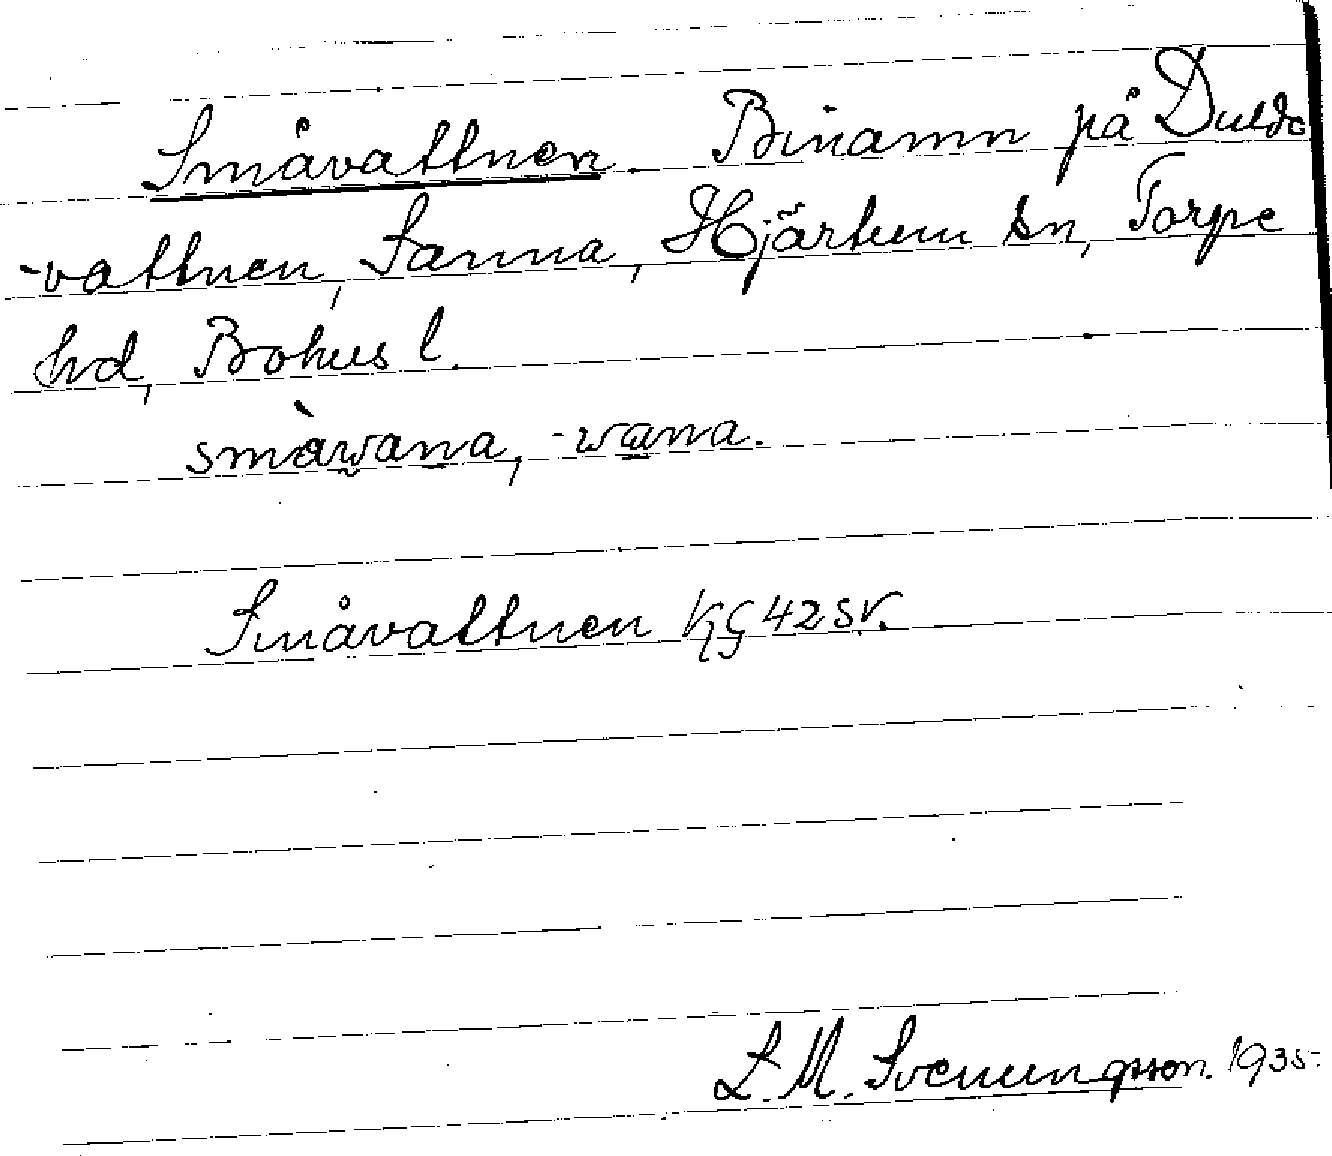 Småvattnen. Binamn på Duldo
-vattnen, Sanna, Hjärtum sn, Torpe
hd, Bohus l.
småwana, -wana.
Småvattnen KG 42 SV.
L. M. Svenungsson. 1935.